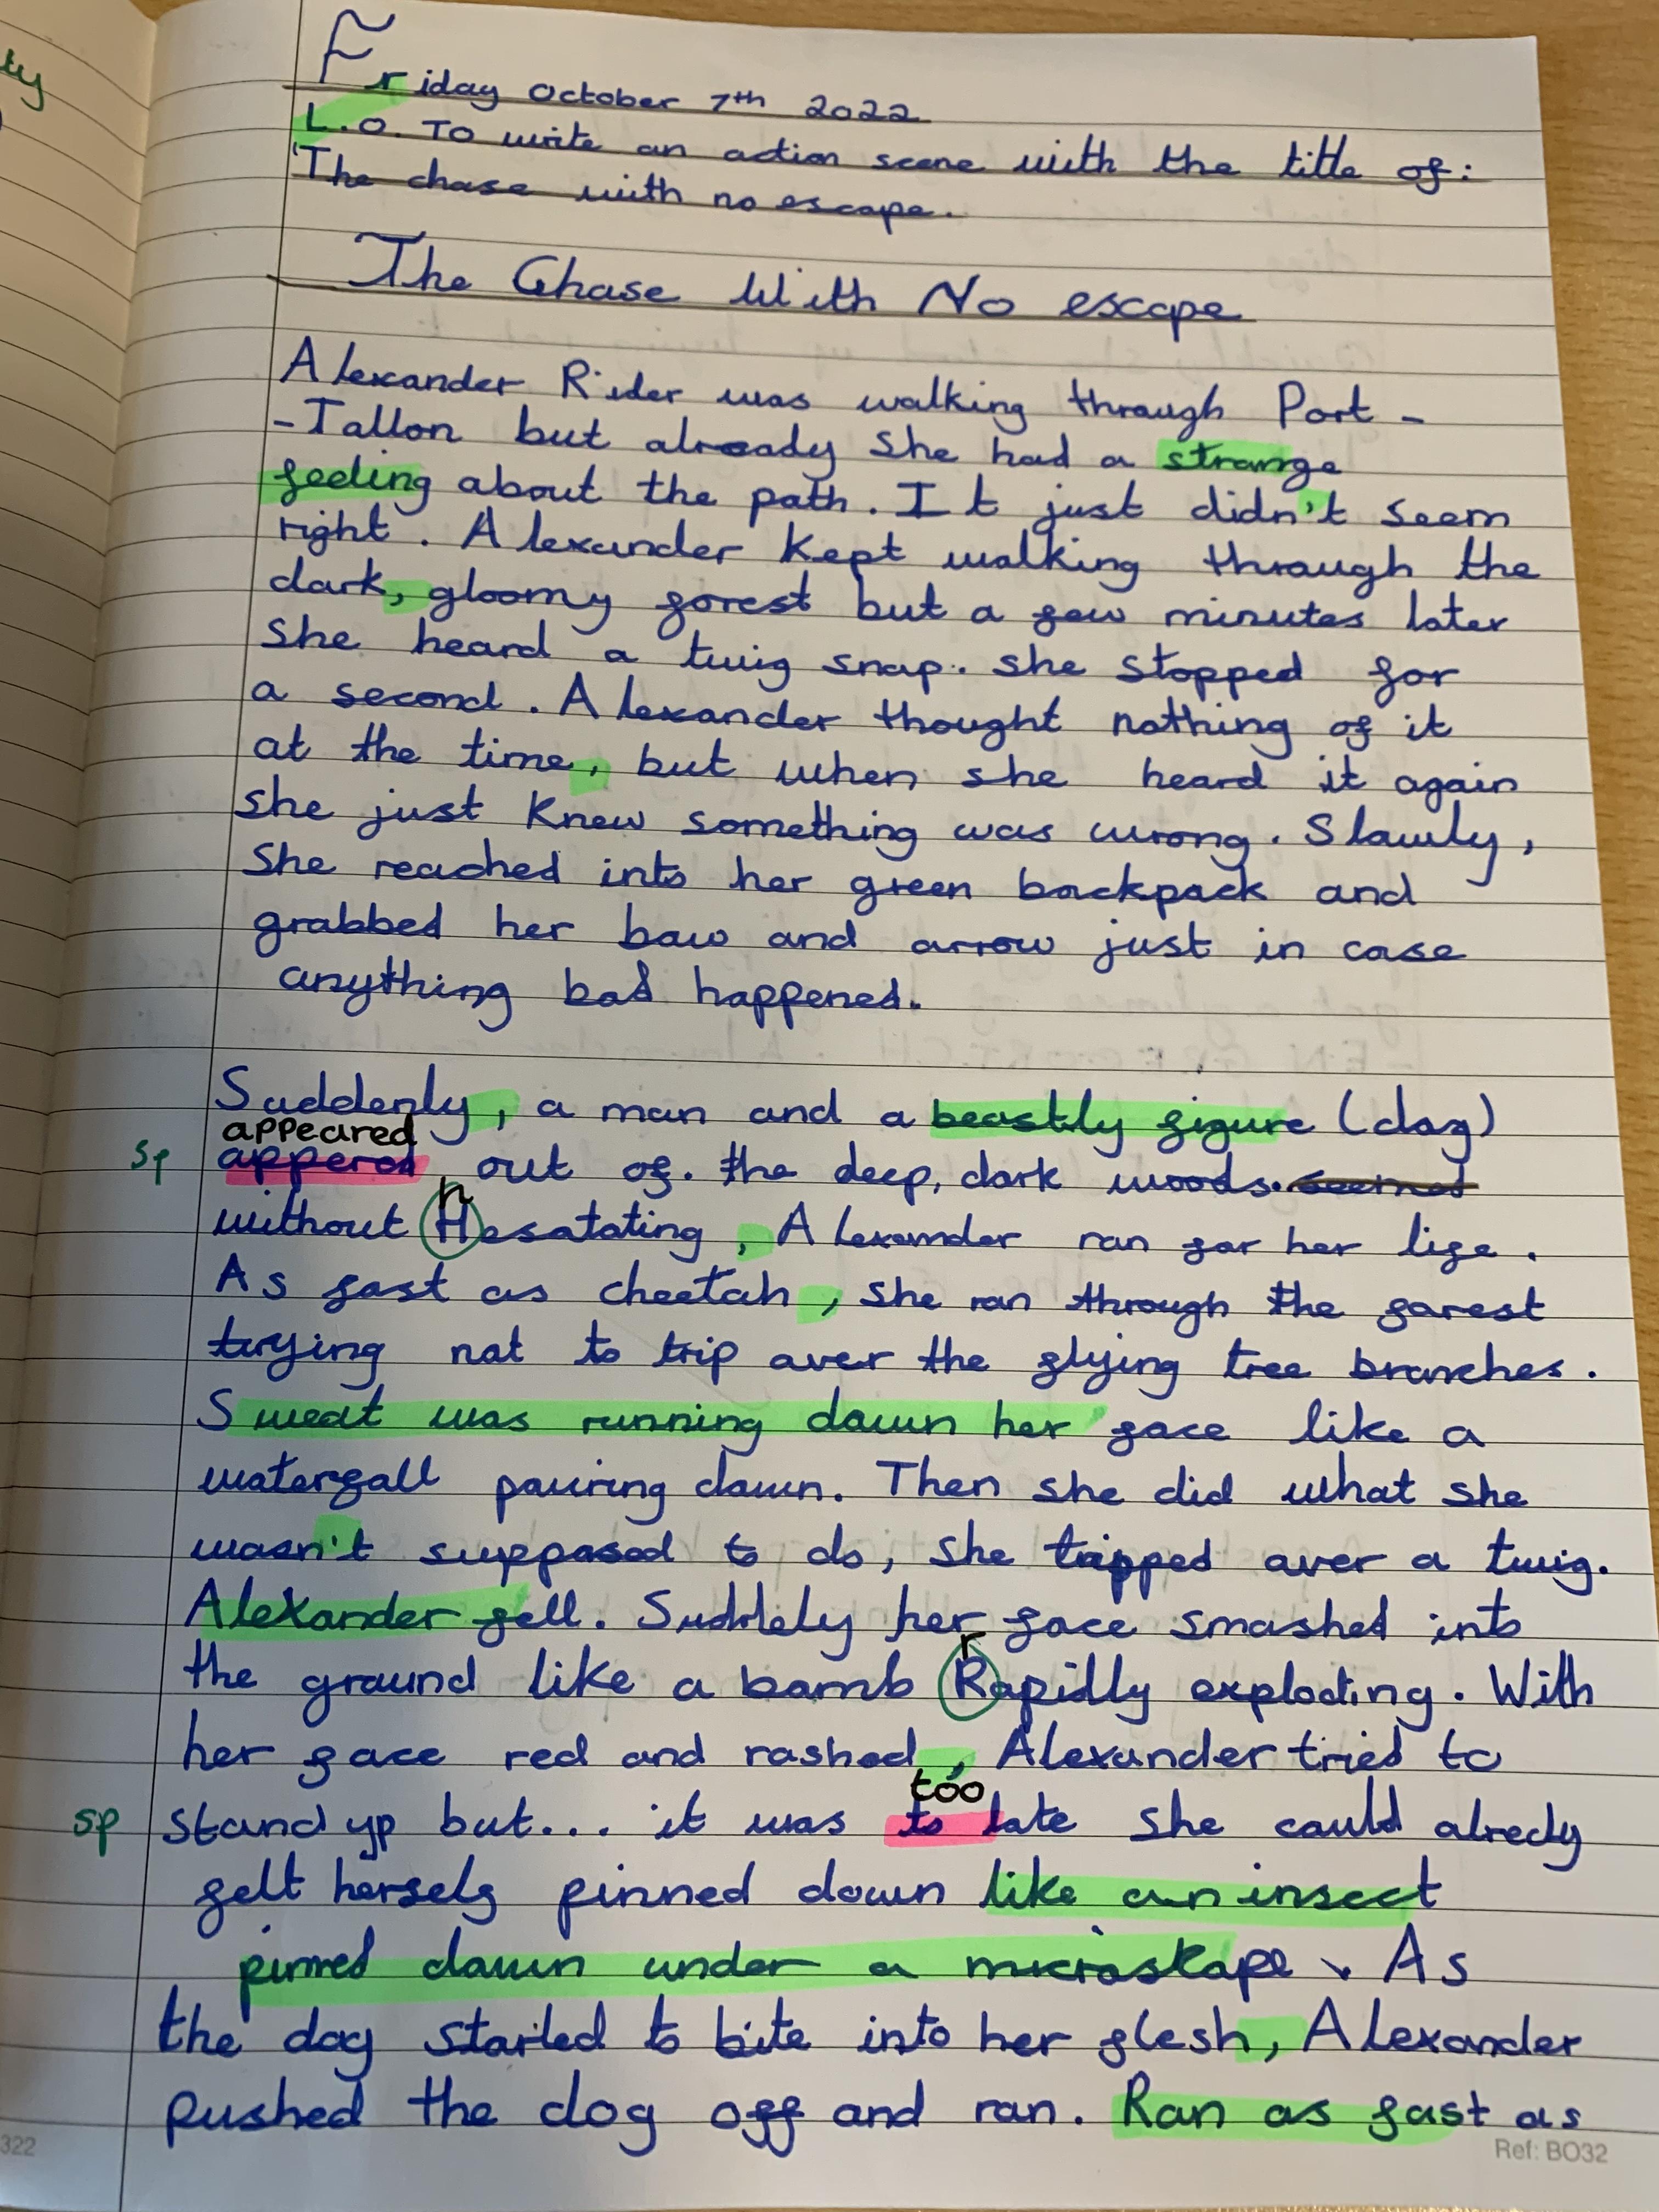 ty
Friday October 7th 2022
L.O. To write an action scene with the title of:
'The chase with no escape.
The Chase With No escape
Alexander Rider was walking through Port -
-Tallon but already she had a strange
feeling about the path. It just didn't seem
right. Alexander Kept walking through the
dark, gloomy forest but a few minutes later
she heard a twig snap. she stopped for
a second. Alexander thought nothing of it
at the time, but when she heard it again
she just Knew something was wrong. Slowly,
she reached into her green backpack and
grabbed her bow and arrow just in case
anything bad happened.
Suddenly, a man and a beastly figure (dog)
appeared
sp appered out of. the deep, dark woods.
h
without Hesatating, Alexander ran for her life.
As fast as cheetah, she ran through the forest
trying not to trip over the flying tree branches.
Sweat was running down her face like a
waterfall pouring down. Then she did what she
wasn't supposed to do, she tripped over a twig.
Alexander fell. Suddely her face smashed into
r
the ground like a bomb Rapidly exploding. With
her face red and rashed, Alexander tried to
too
sp stand up but... it was to late she could alredy
felt herself pinned down like an insect
pinned down under a microskope. As
the dog started to bite into her flesh, Alexander
pushed the dog off and ran. Ran as fast as
322
Ref: BO32